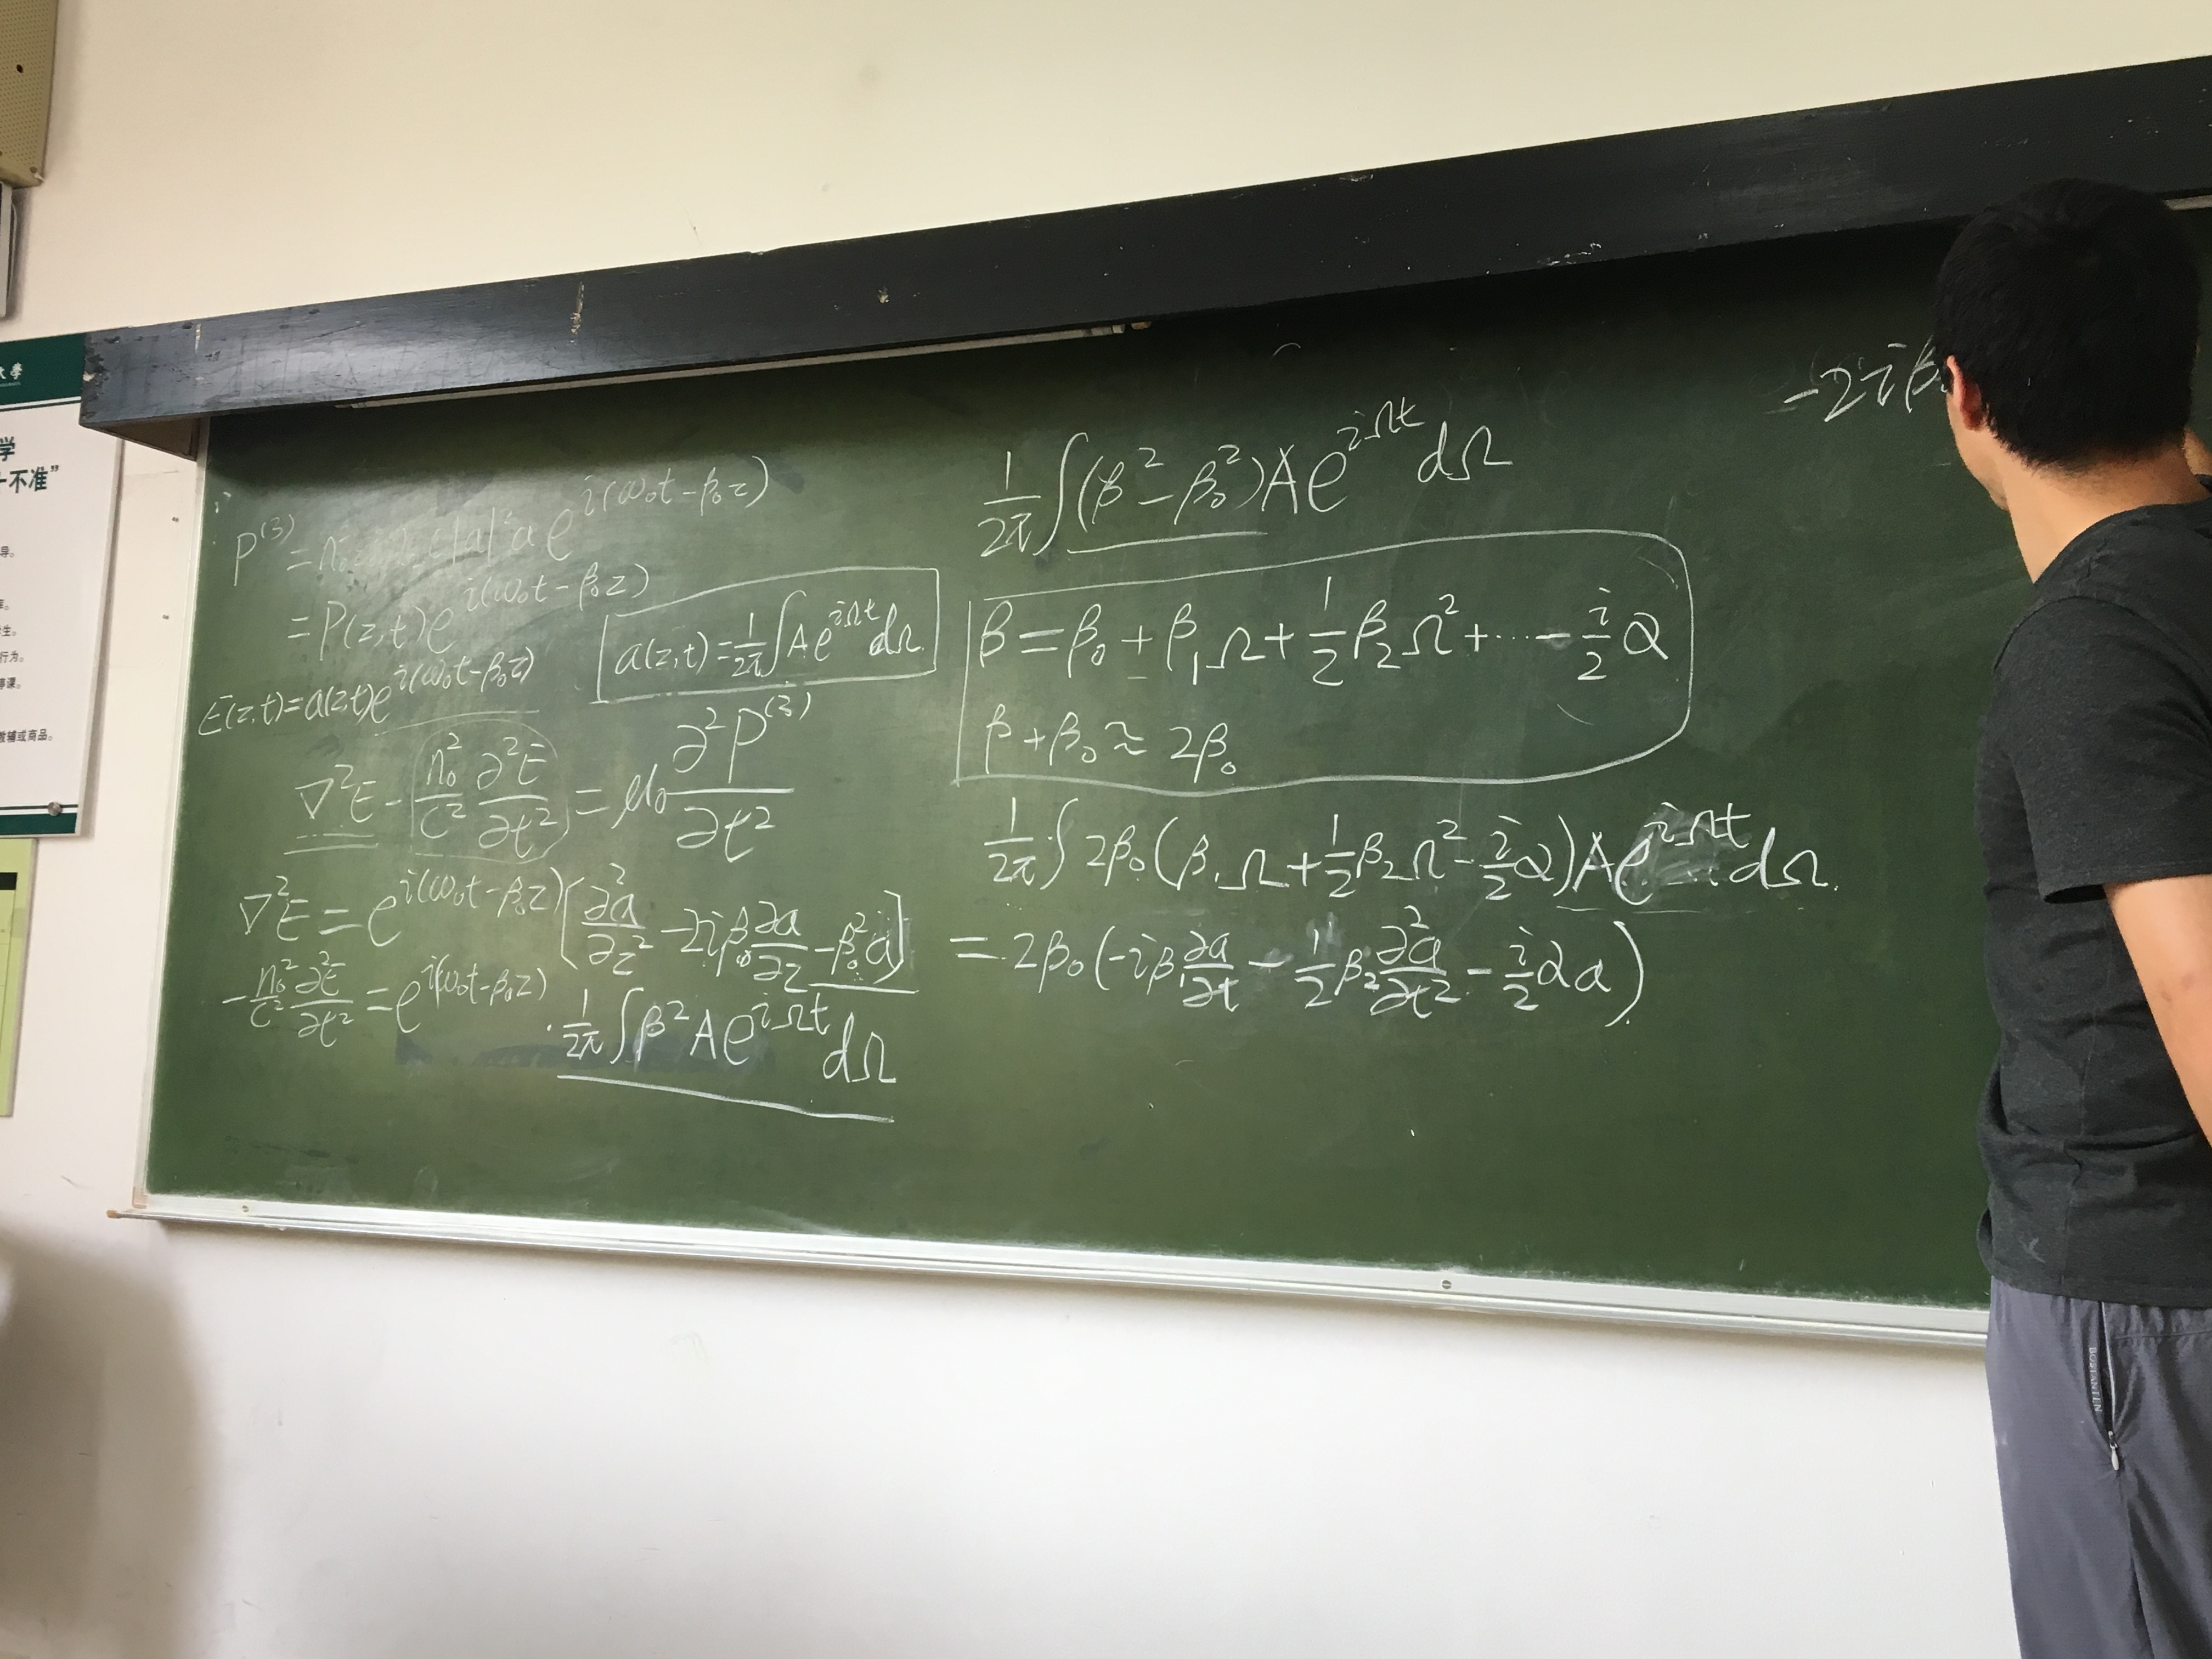 大学
学
十不准”
导。
生。
行为。
课。
教辅或商品。
P^(3) = n |a|^2 a e^{i(ω_0t-β_0z)}
= P(z,t) e^{i(ω_0t-β_0z)}
E(z,t) = a(z,t) e^{i(ω_0t-β_0z)}
a(z,t) = 1/2π ∫ A e^{iΩt} dΩ.
∇^2E - n_0^2/c^2 ∂^2E/∂t^2 = μ_0 ∂^2P^(3)/∂t^2
∇^2E = e^{i(ω_0t-β_0z)} [∂^2a/∂z^2 - 2iβ_0 ∂a/∂z - β_0^2 a]
- n_0^2/c^2 ∂^2E/∂t^2 = e^{i(ω_0t-β_0z)}
· 1/2π ∫ β^2 A e^{iΩt} dΩ
1/2π ∫ (β^2 - β_0^2) A e^{iΩt} dΩ
β = β_0 + β_1Ω + 1/2 β_2Ω^2 + ··· - i/2 α
β + β_0 ≈ 2β_0
1/2π ∫ 2β_0 (β_1Ω + 1/2 β_2Ω^2 - i/2 α) A e^{iΩt} dΩ.
= 2β_0 (-iβ_1 ∂a/∂t - 1/2 β_2 ∂^2a/∂t^2 - i/2 αa)
-2iβ
BOSIANTEN